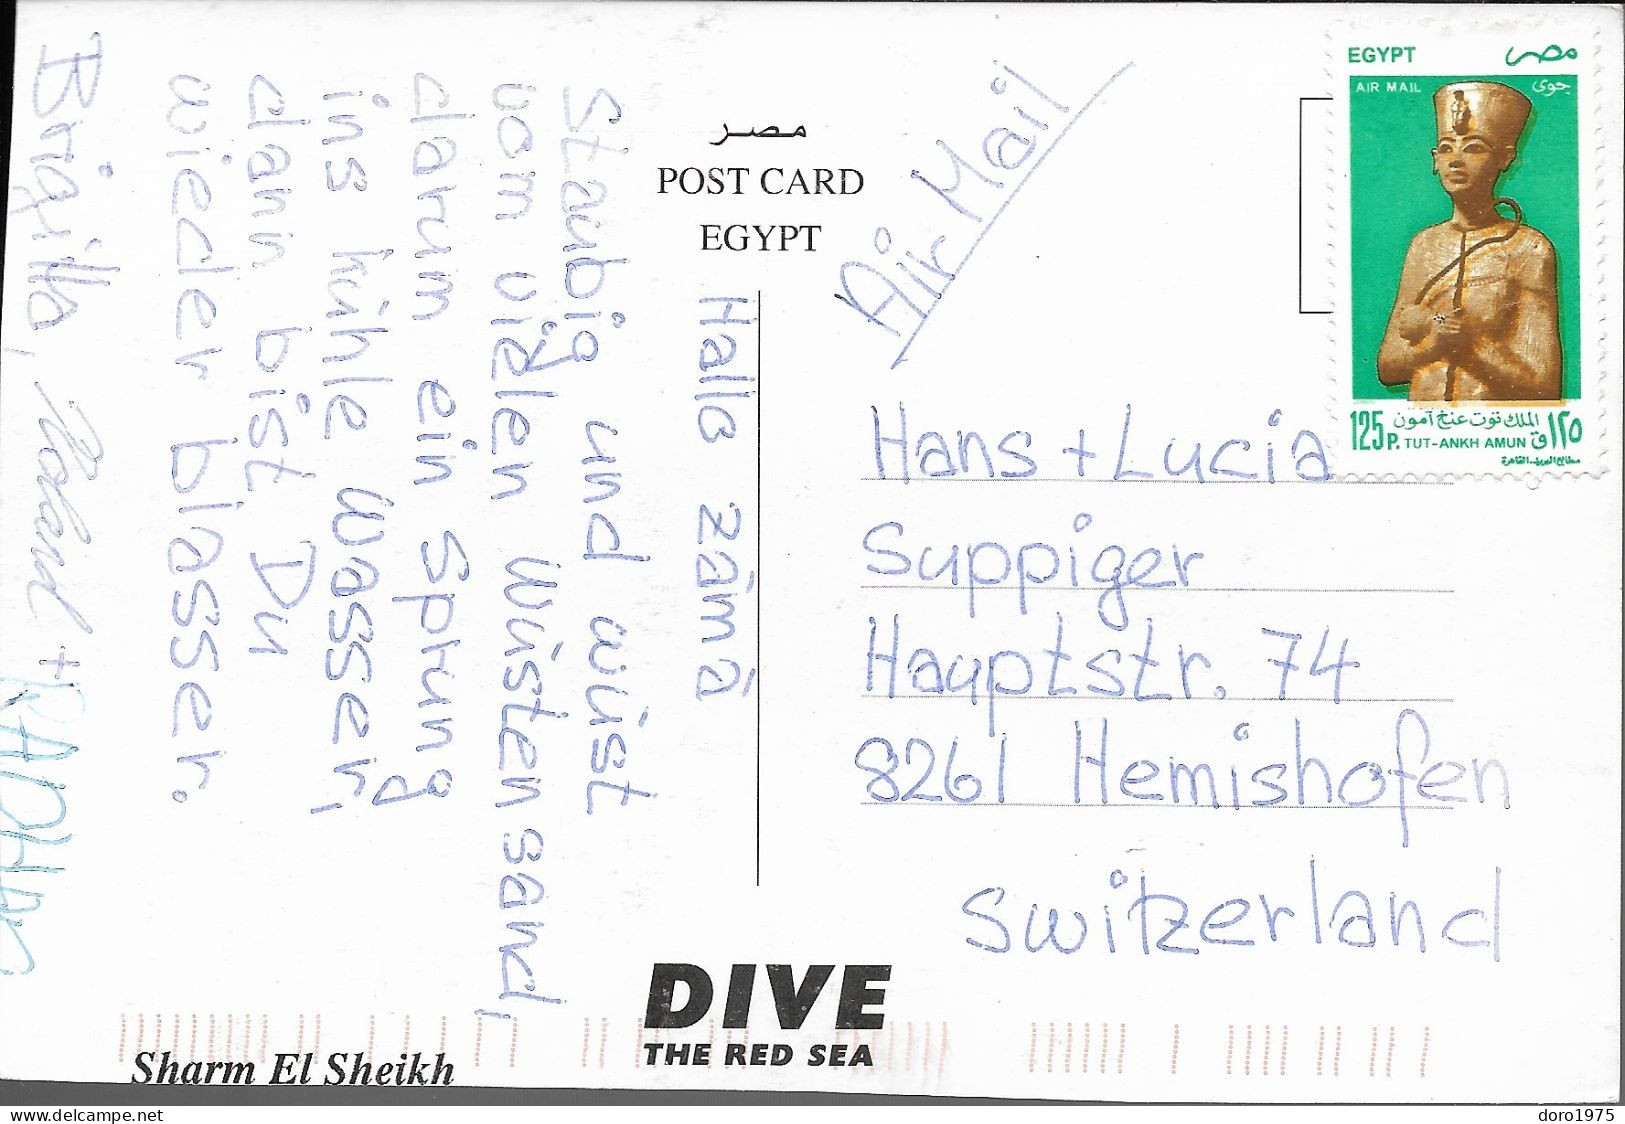 Hallo zämä
Staubig und wüst
vom vielen Wüstensand,
darum ein Sprung
ins kühle Wasser,
dann bist Du
wieder blasser.
Brigitta, Roland +
مصر
POST CARD
EGYPT
Air Mail
EGYPT مصر
AIR MAIL جوى
الملك توت عنخ آمون ١٢٥ ق
125 P. TUT-ANKH AMUN
مطابع البريد - القاهرة
Hans + Lucia
Suppiger
Hauptstr. 74
8261 Hemishofen
Switzerland
DIVE
THE RED SEA
Sharm El Sheikh
delcampe.net
doro1975